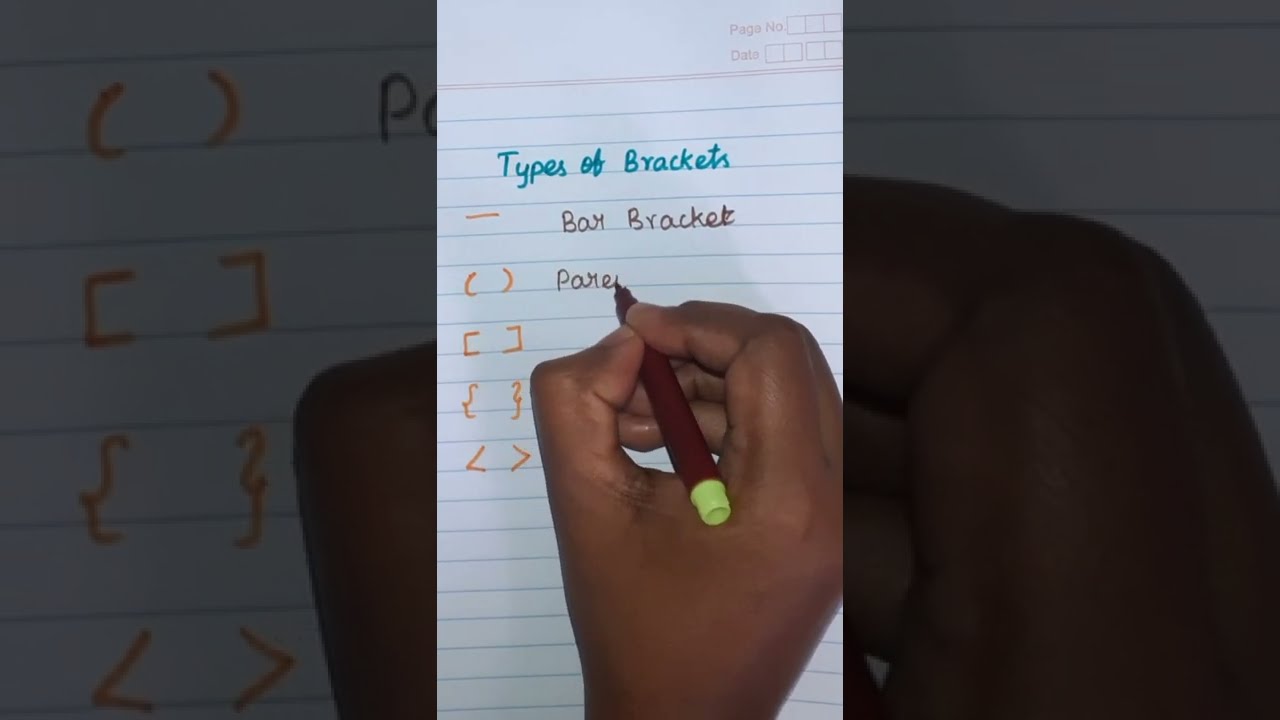 Page No.
Date
Types of Brackets
— Bar Bracket
( ) Pare
[ ]
{ }
< >